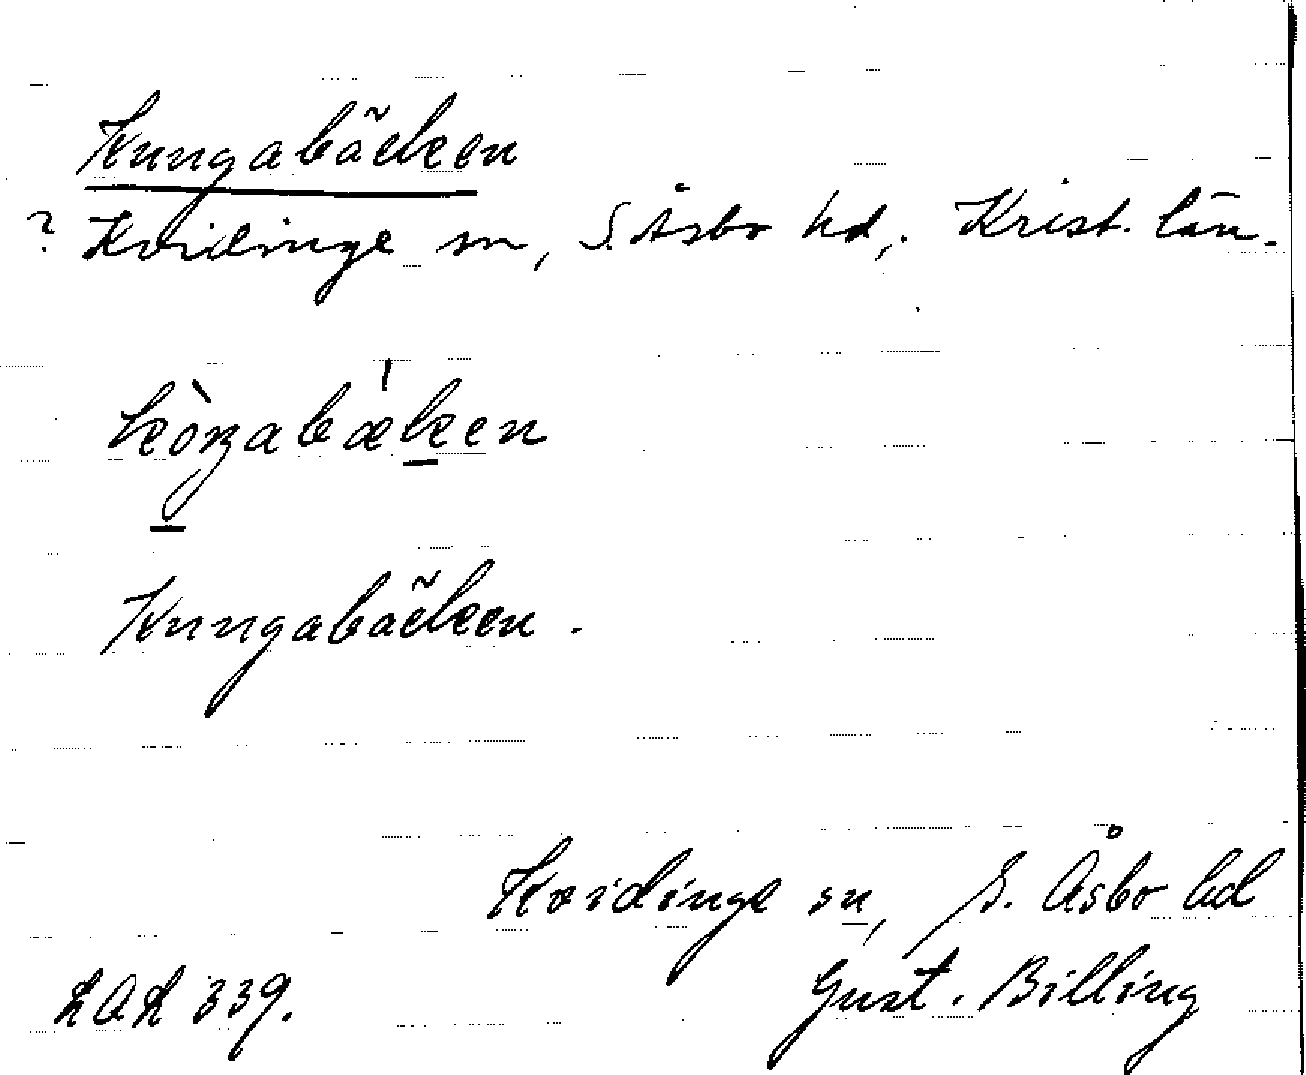 Kungabäcken
? Kvidinge sn, S. Åsbo hd, Krist. län.
kòŋabæken
Kungabäcken.
Kvidinge sn, S. Åsbo hd
Gust. Billing
LAL 339.